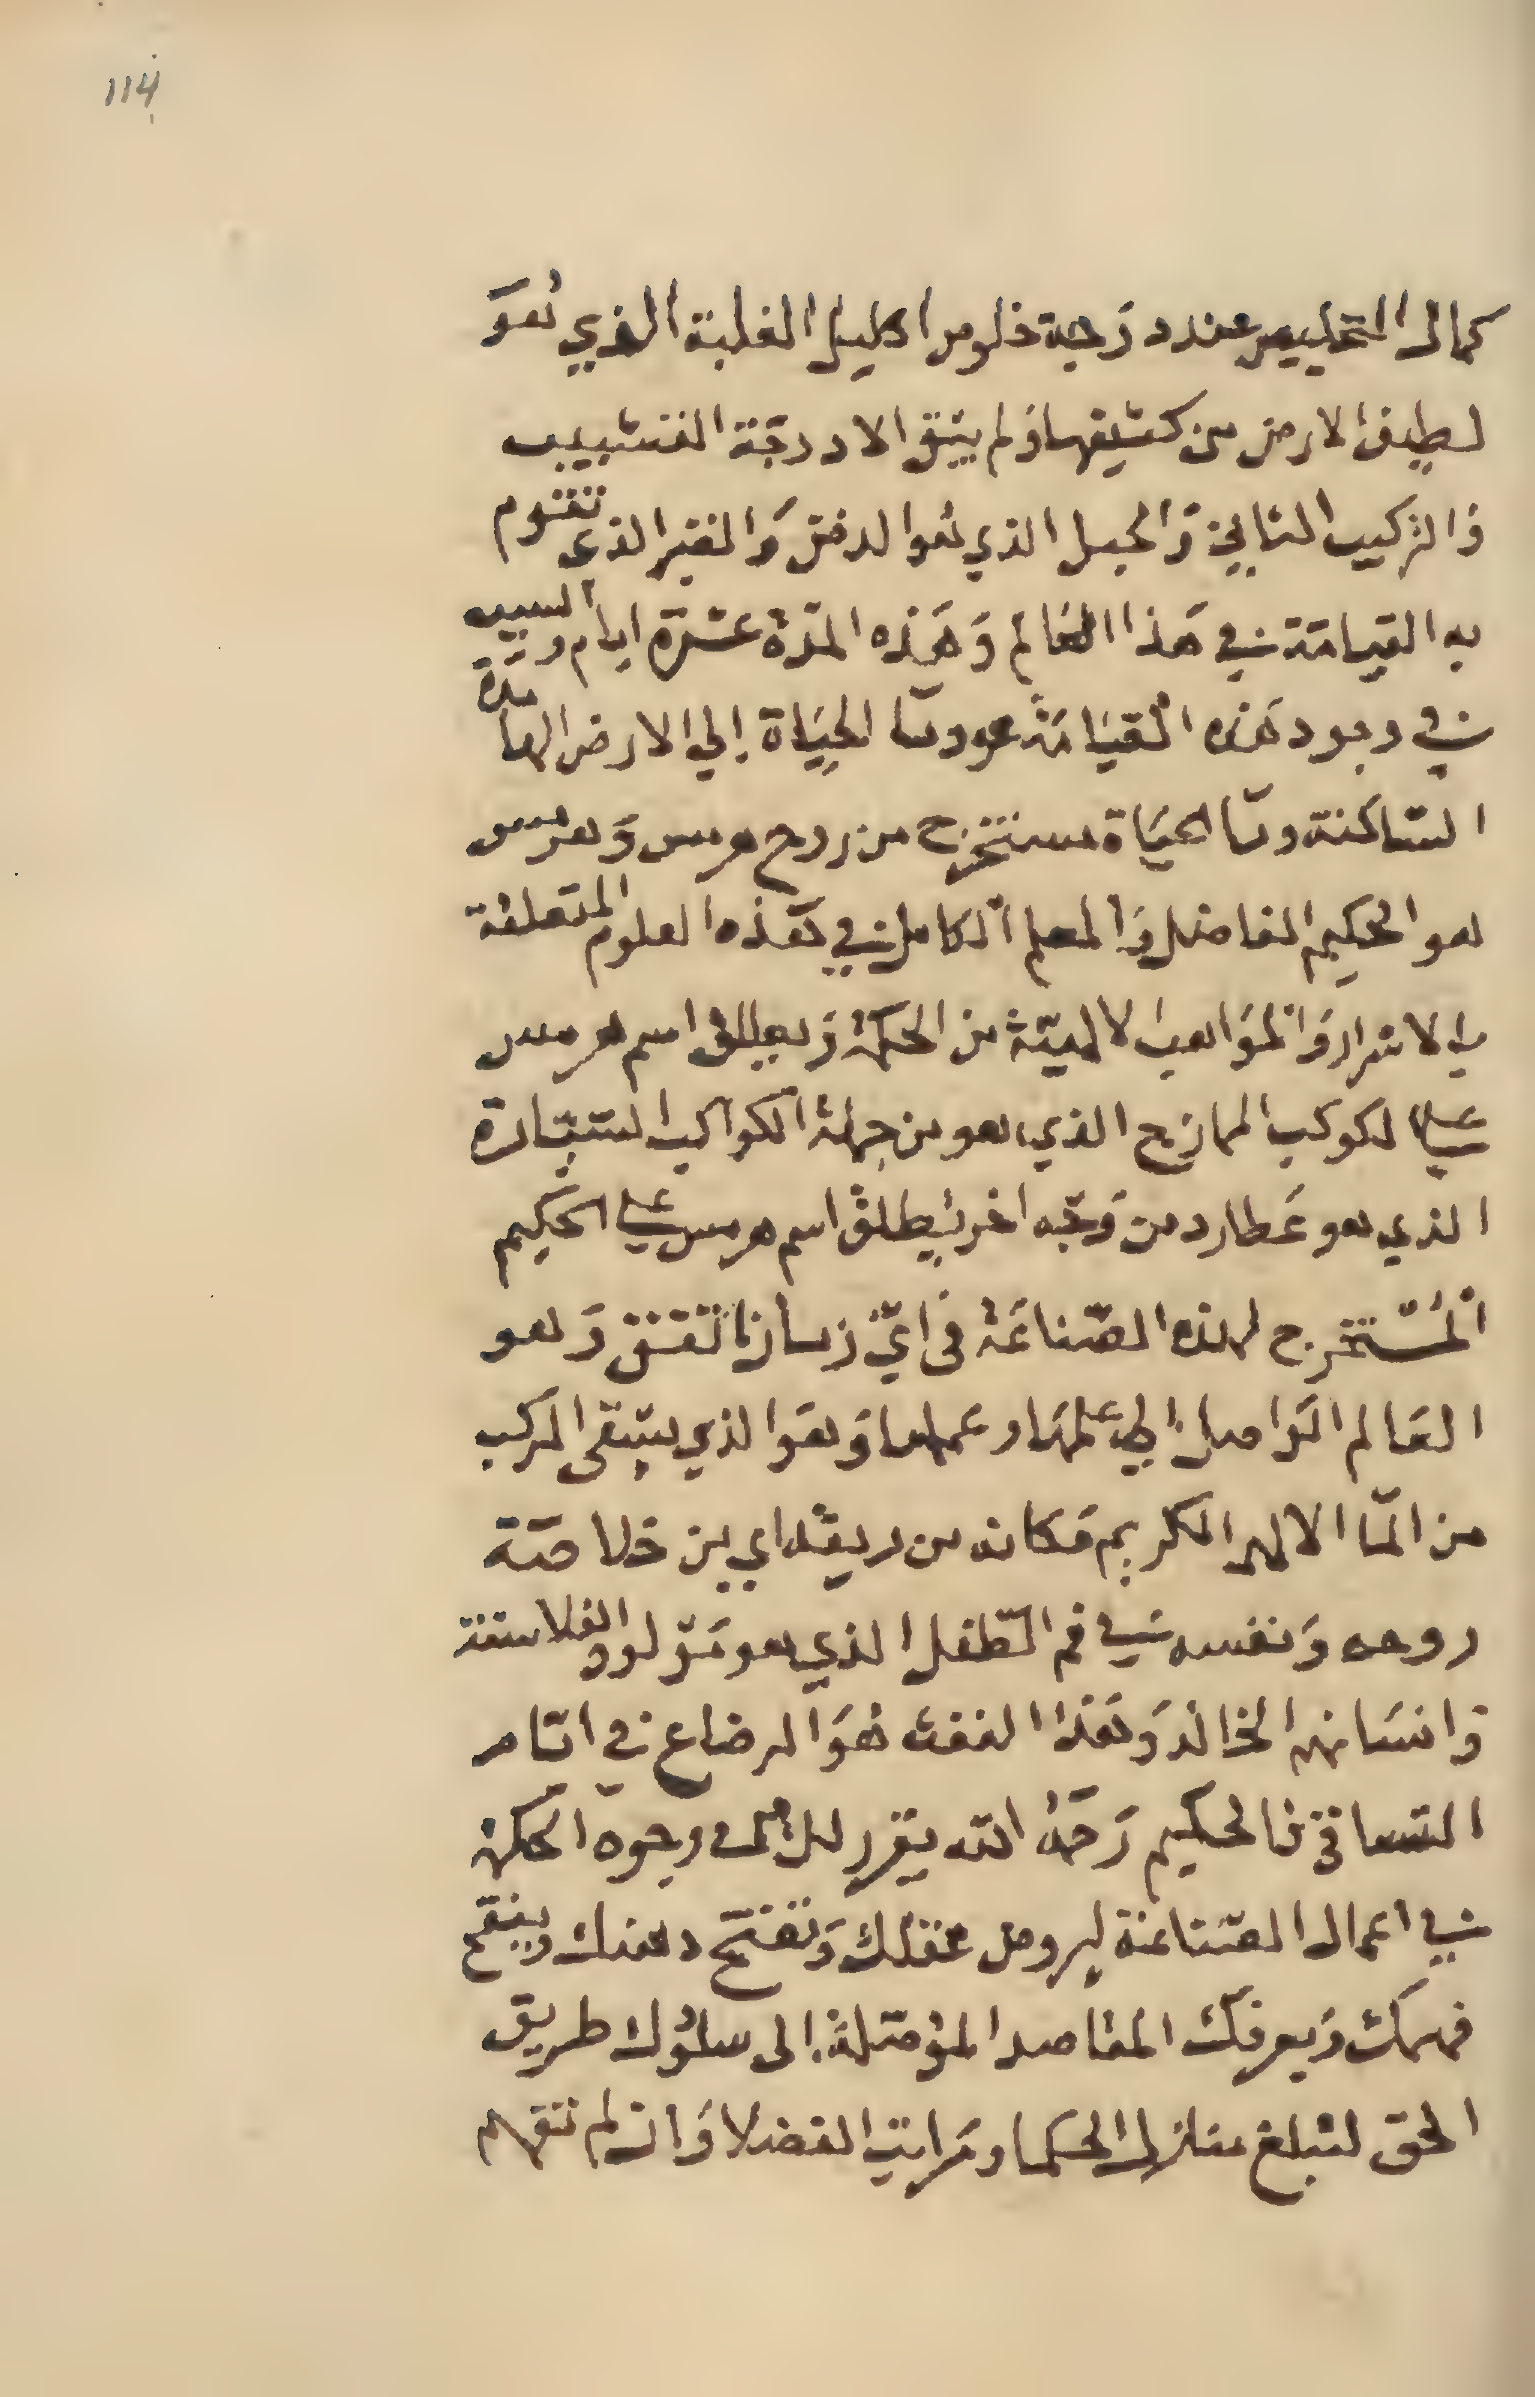 114
كمال التخليص عند درجة خلوص اكليل الغلبة الذي هو
لطيف الارض من كثيفها ولم يبق الا درجة التشبيب
والتركيب الثاني والحبل الذي هو الدفن والقبر الذى تقوم
به القيامة في هذا العالم وهذه المدة عشرة ايام والسبب
في وجود هذه القيامة عود ما الحياة الي الارض الهامدة
الساكنة وما الحياة مستخرج من روح هرمس وهرمس
هو الحكيم الفاضل والمعلم الكامل في هذه العلوم المتعلقة
بالاسرار والمواهب الالهية من الحكمة ويطلق اسم هرمس
علي الكوكب الممازج الذي هو من جملة الكواكب السيارة
الذي هو عطارد من وجه اخر يطلق اسم هرمس علي الحكيم
المستخرج لهذه الصناعة في ايّ زمان اتفق وهو
العالم الواصل الي علمها وعملها وهو الذي يسقى المركب
من الما الالهى الكريم فكانه من ريقه اي من خلاصة
روحه ونفسه في فم الطفل الذي هو مولود الفلاسفة
وانسانهم الخالد وهذا النفث هو الرضاع في ايام
التساقي فالحكيم رحمه الله يقرر لك وجوه الحكمة
في اعمال الصناعة ليروض عقلك وتفتح ذهنك وينقح
فهمك ويعرفك المقاصد الموصلة الى سلوك طريق
الحق لتبلغ منازل الحكما ومراتب الفضلا وان لم تفهم